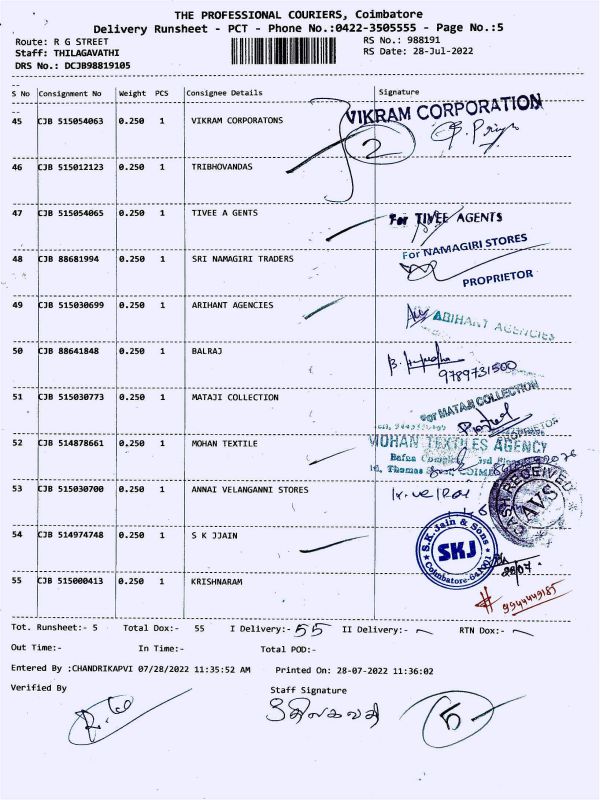 THE PROFESSIONAL COURIERS, Coimbatore
Delivery Runsheet - PCT - Phone No.:0422-3505555 - Page No.:5
Route: R G STREET
RS No.: 988191
Staff: THILAGAVATHI
RS Date: 28-Jul-2022
DRS No.: DCJB98819105
S No Consignment No Weight PCS Consignee Details Signature
45 CJB 515054063 0.250 1 VIKRAM CORPORATONS VIKRAM CORPORATION
2
46 CJB 515012123 0.250 1 TRIBHOVANDAS
47 CJB 515054065 0.250 1 TIVEE A GENTS For TIVEE AGENTS
48 CJB 88681994 0.250 1 SRI NAMAGIRI TRADERS For NAMAGIRI STORES
PROPRIETOR
49 CJB 515030699 0.250 1 ARIHANT AGENCIES ARIHANT AGENCIES
50 CJB 88641848 0.250 1 BALRAJ
9789731500
51 CJB 515030773 0.250 1 MATAJI COLLECTION For MATAJI COLLECTION
PROPRIETOR
52 CJB 514878661 0.250 1 MOHAN TEXTILE MOHAN TEXTILES AGENCY
53 CJB 515030700 0.250 1 ANNAI VELANGANNI STORES
CASH RECEIVED
AVS
54 CJB 514974748 0.250 1 S K JJAIN S.K. Jain & Sons
SKJ
Coimbatore-641001
28/07
55 CJB 515000413 0.250 1 KRISHNARAM
9944449185
Tot. Runsheet:- 5 Total Dox:- 55 I Delivery:- 55 II Delivery:- RTN Dox:-
Out Time:- In Time:- Total POD:-
Entered By :CHANDRIKAPVI 07/28/2022 11:35:52 AM Printed On: 28-07-2022 11:36:02
Verified By Staff Signature
திலகவதி
5